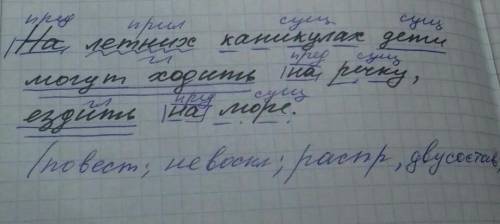 пред прил сущ сущ
На летних каникулах дети
гл пред сущ
могут ходить на речку,
гл пред сущ
ездить на море.
(повест; невоскл; распр, двусостав,